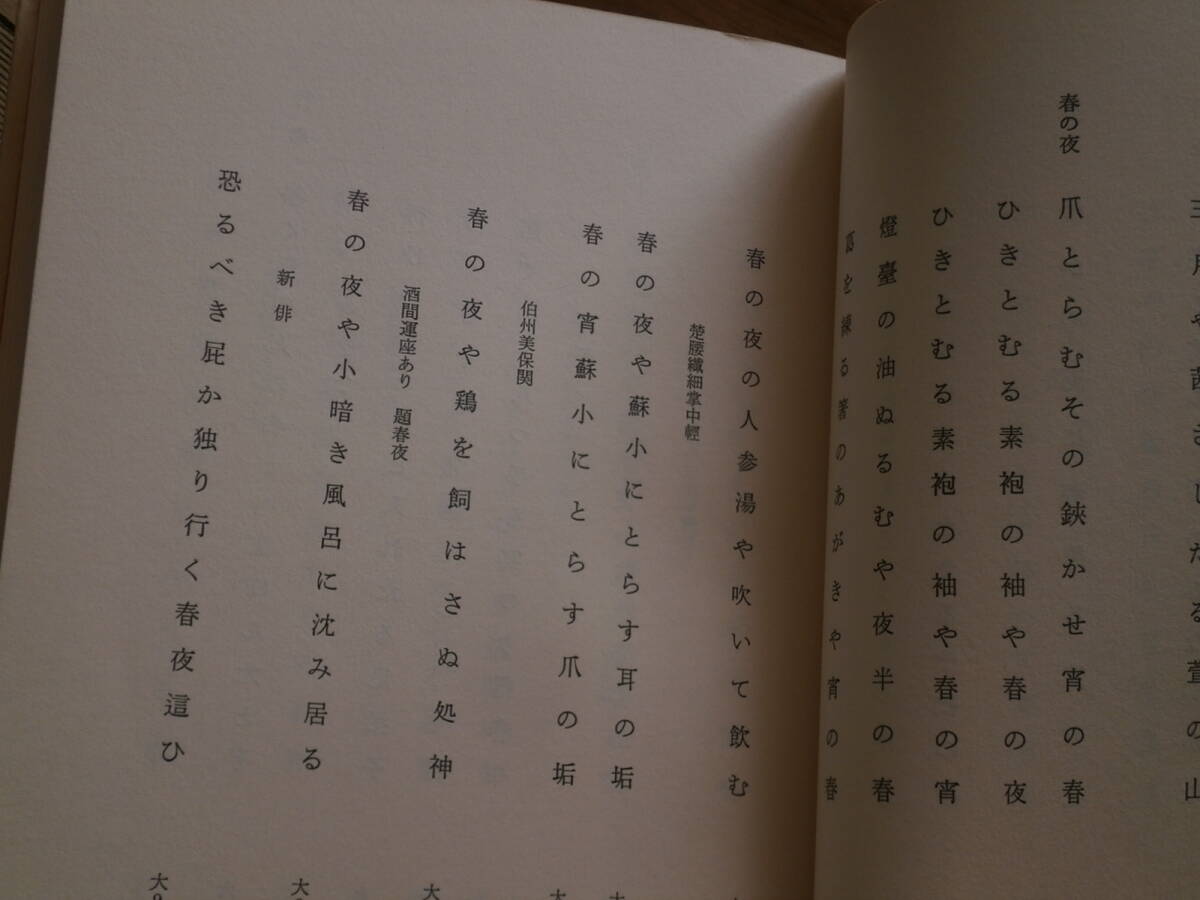 春の夜
爪とらむその鋏かせ宵の春
ひきとむる素袍の袖や春の夜
ひきとむる素袍の袖や春の宵
燈臺の油ぬるむや夜半の春
を練る箸のあがきや宵の春
春の夜の人参湯や吹いて飲む
楚腰纖細掌中輕
春の夜や蘇小にとらす耳の垢
春の宵蘇小にとらす爪の垢
伯州美保関
春の夜や鶏を飼はさぬ処神
酒間運座あり 題春夜
春の夜や小暗き風呂に沈み居る
新俳
恐るべき屁か独り行く春夜這ひ
大
大
大
大